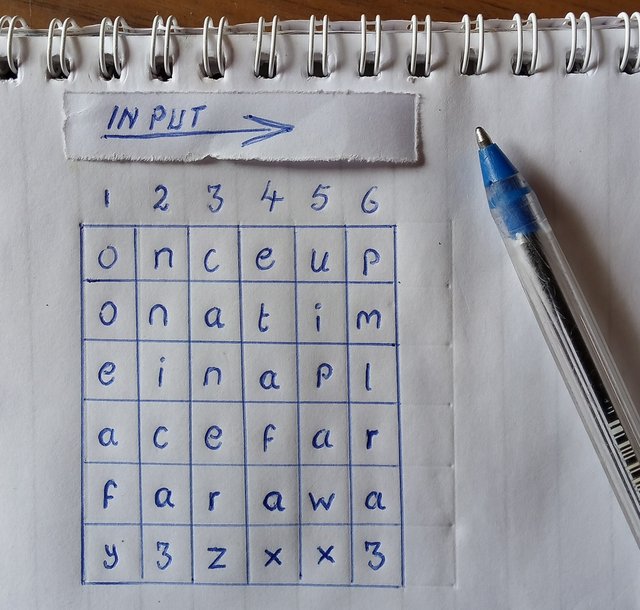 INPUT
1 2 3 4 5 6
o n c e u p
o n a t i m
e i n a p l
a c e f a r
f a r a w a
y 3 z x x 3